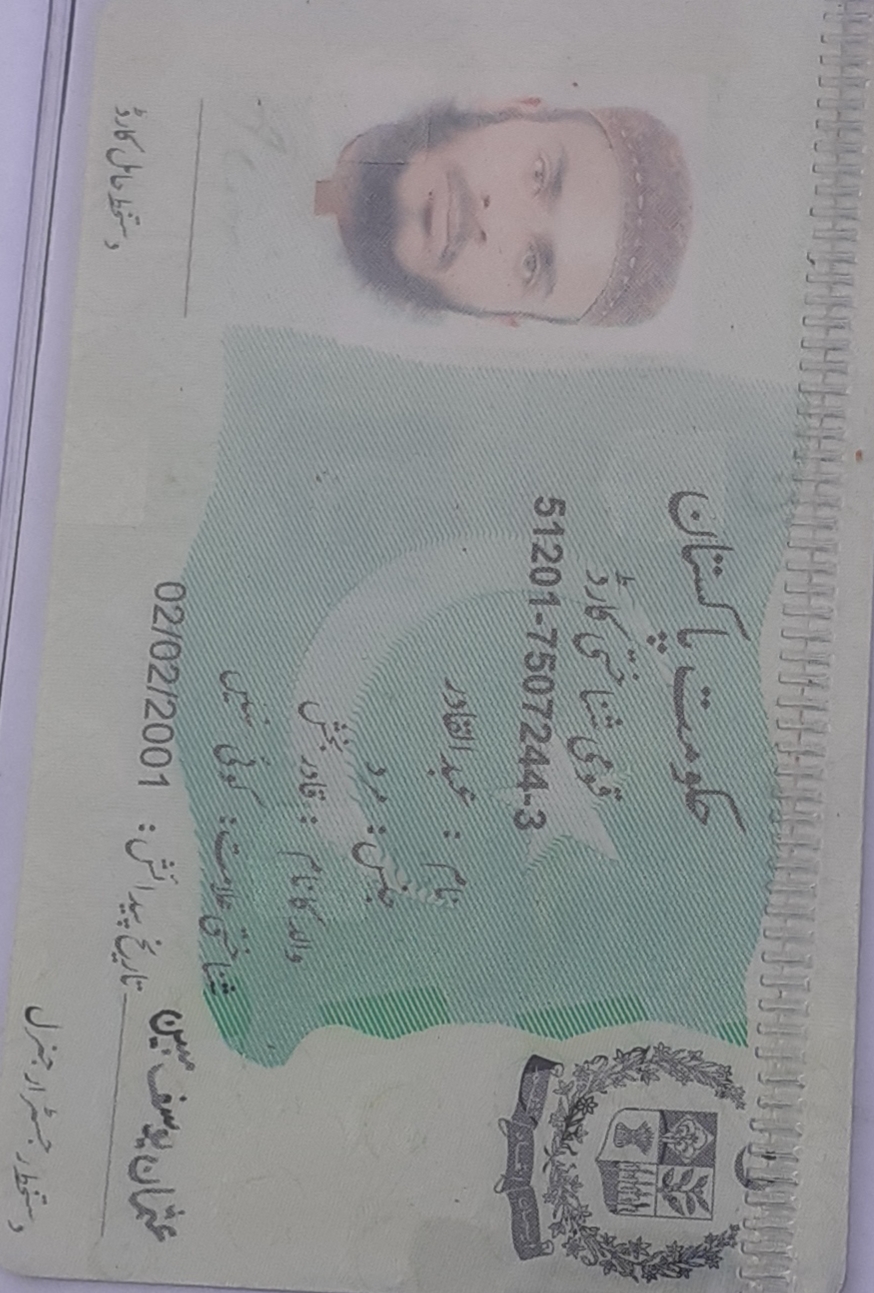 حکومت پاکستان
قومی شناختی کارڈ
51201-7507244-3
نام : عبدالقادر
جنس : مرد
والد کا نام : قادر بخش
شناختی علامت : کوئی نہیں
تاریخ پیدائش : 02/02/2001
دستخط حامل کارڈ
عثمان یوسف مبین
دستخط رجسٹرار جنرل